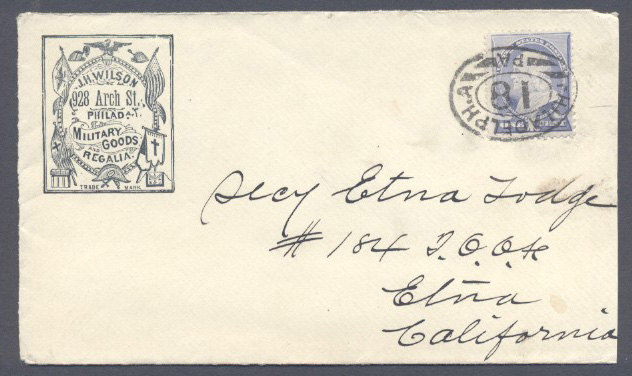 J.H. WILSON
928 Arch St.,
PHILADA.
MILITARY
GOODS
AND
REGALIA.
TRADE MARK
PHILADELPHIA
PA
18
Secy Etna Lodge
# 184 I.O.O.F.
Etna
California